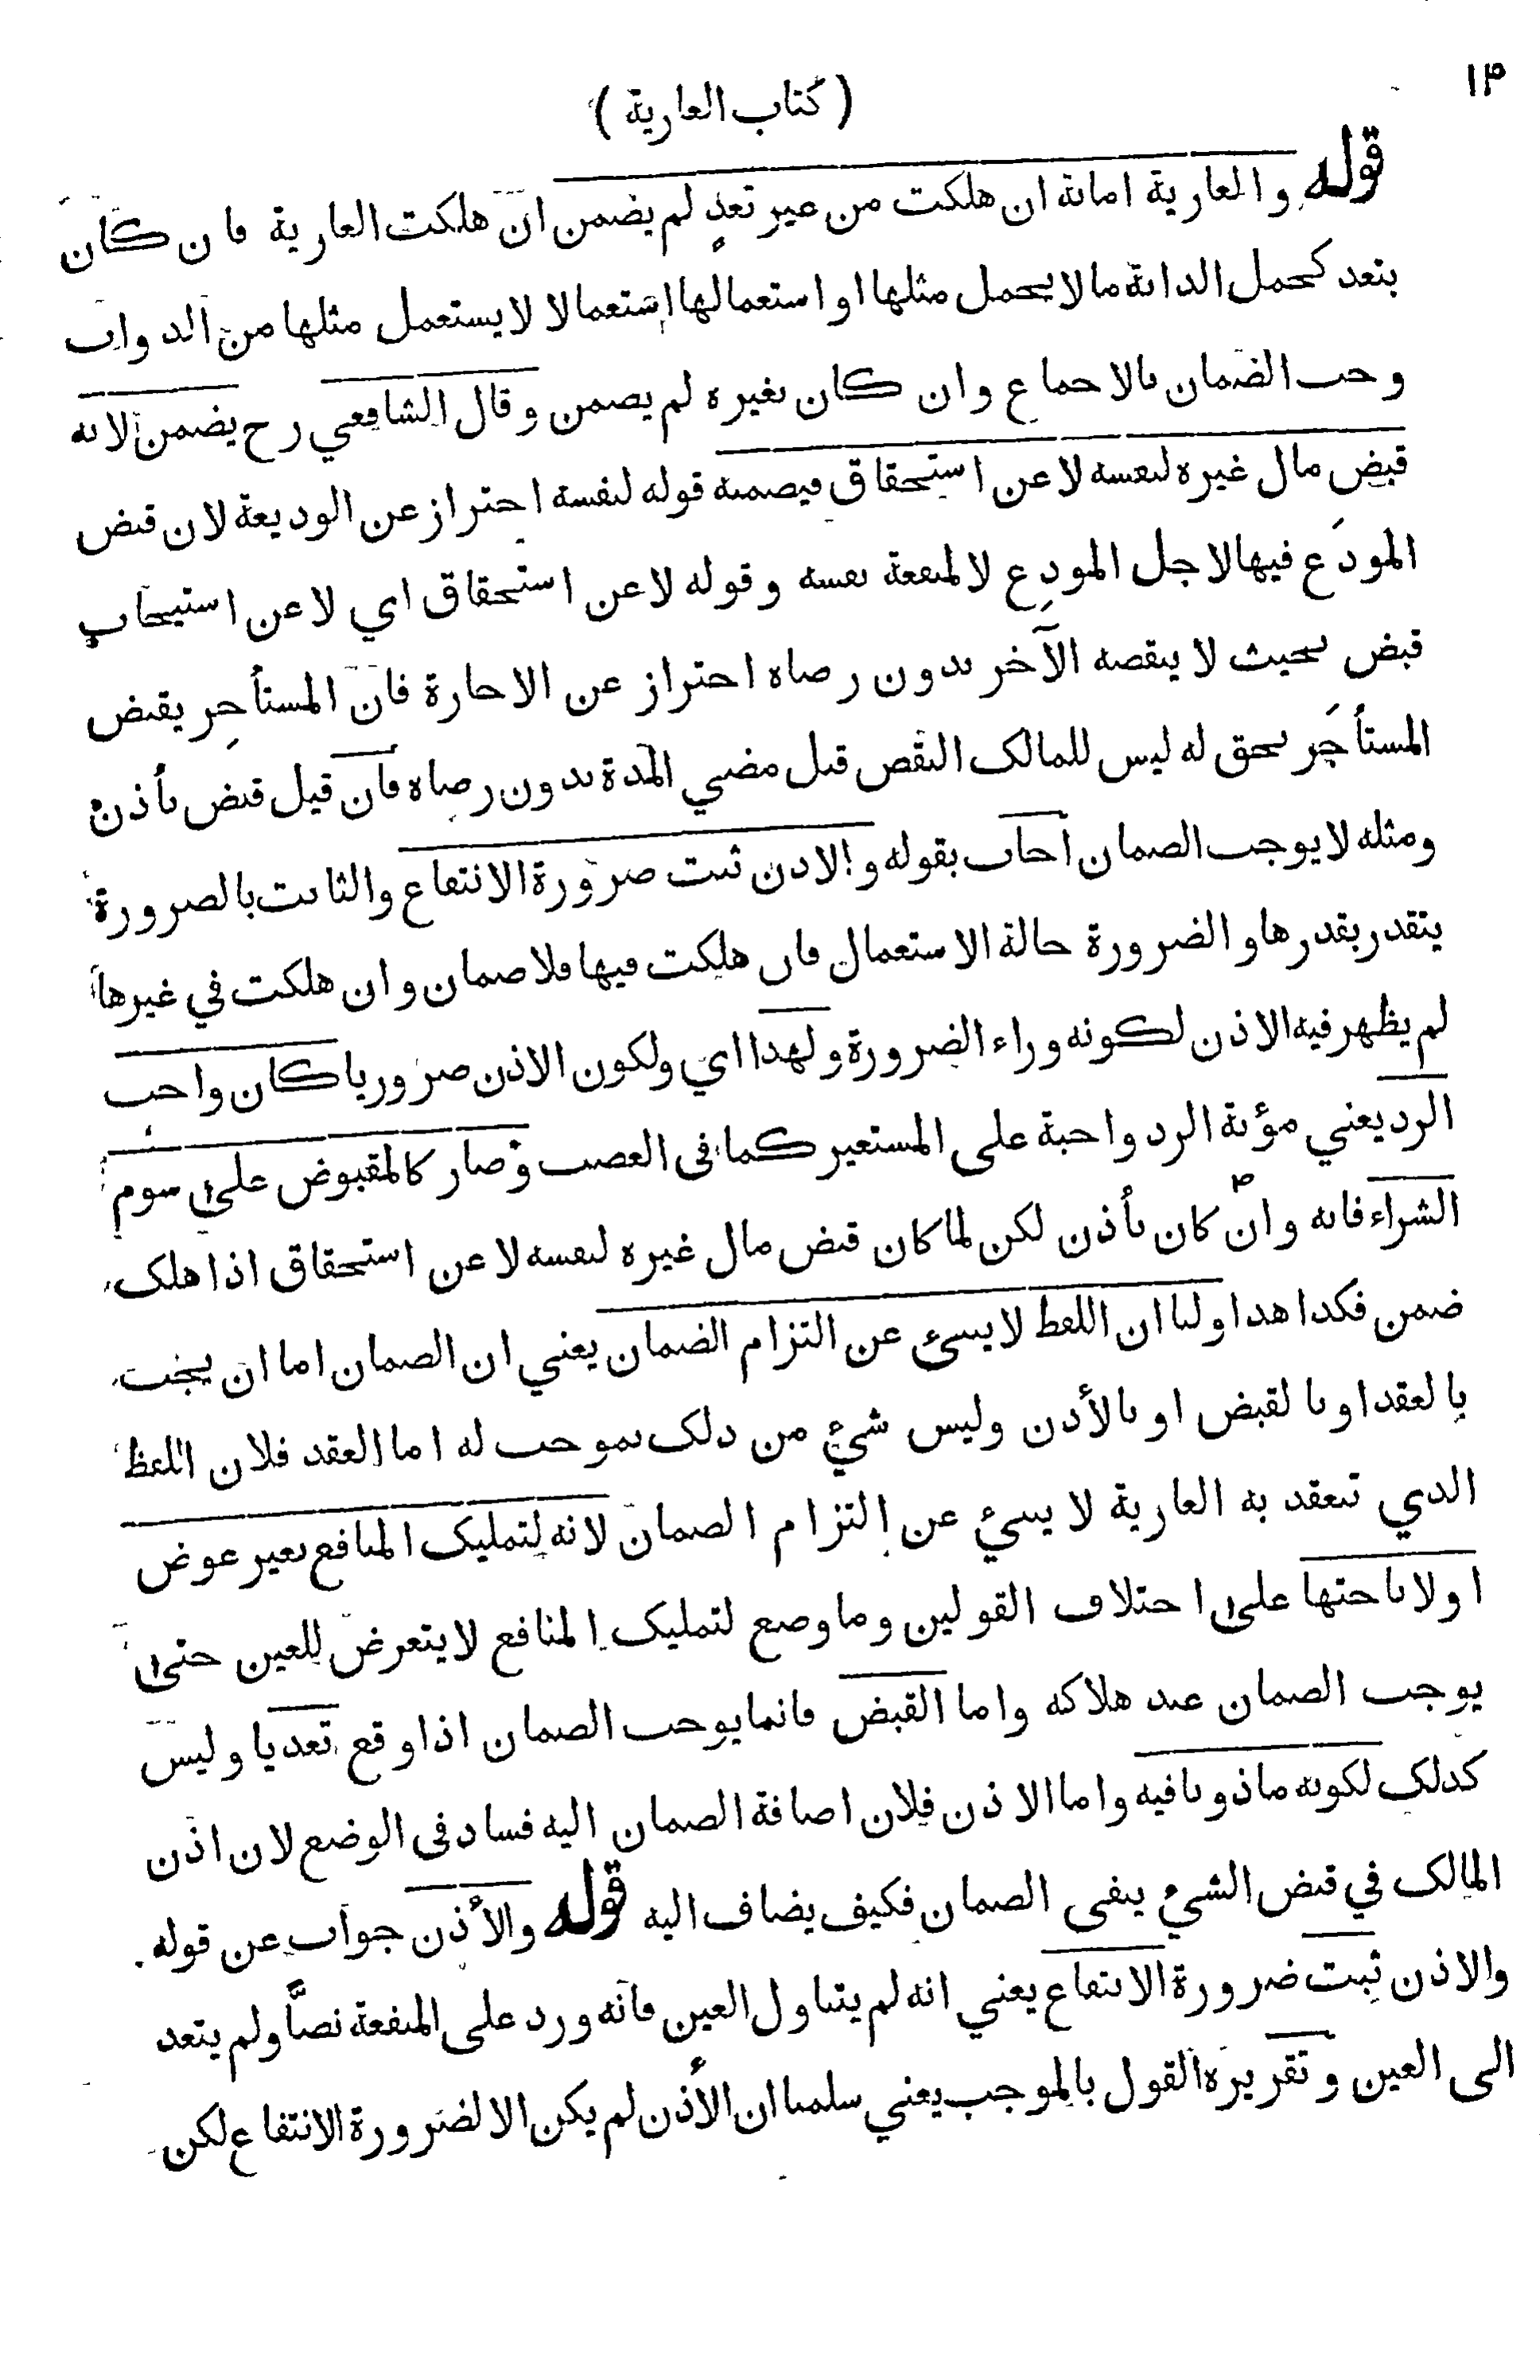 ١٣
( كتاب العارية )
قوله والعارية امانة ان هلكت من غير تعدٍ لم يضمن ان هلكت العارية فان كان
بتعد كحمل الدابة ما لا يحمل مثلها او استعمالها استعمالا لا يستعمل مثلها من الدواب
وجب الضمان بالاجماع وان كان بغيره لم يضمن وقال الشافعي رح يضمن لانه
قبض مال غيره لنفسه لا عن استحقاق فيضمنه قوله لنفسه احتراز عن الوديعة لان قبض
المودَع فيها لاجل المودِع لا لمنفعة نفسه وقوله لا عن استحقاق اي لا عن استيجاب
قبض بحيث لا ينقضه الآخر بدون رضاه احتراز عن الاجارة فان المستأجِر يقبض
المستأجَر بحق له ليس للمالك النقض قبل مضي المدة بدون رضاه فان قيل قبض بأذن
ومثله لا يوجب الضمان اجاب بقوله والاذن ثبت ضرورة الانتفاع والثابت بالضرورة
يتقدر بقدرها والضرورة حالة الاستعمال فان هلكت فيها فلا ضمان وان هلكت في غيرها
لم يظهر فيه الاذن لكونه وراء الضرورة ولهذا اي ولكون الاذن ضروريا كان واجب
الرد يعني مؤنة الرد واجبة على المستعير كما فى الغصب وصار كالمقبوض على سوم
الشراء فانه وان كان بأذن لكن لما كان قبض مال غيره لنفسه لا عن استحقاق اذا هلك
ضمن فكذا هذا ولنا ان اللفظ لا ينبئ عن التزام الضمان يعني ان الضمان اما ان يجب
بالعقد او بالقبض او بالأذن وليس شيء من ذلك بموجب له اما العقد فلان اللفظ
الذي تنعقد به العارية لا ينبئ عن التزام الضمان لانه لتمليك المنافع بغير عوض
او لاباحتها على اختلاف القولين وما وضع لتمليك المنافع لا يتعرض للعين حتى
يوجب الضمان عند هلاكه واما القبض فانما يوجب الضمان اذا وقع تعديا وليس
كذلك لكونه ماذونا فيه واما الاذن فلان اضافة الضمان اليه فساد فى الوضع لان اذن
المالك في قبض الشيء ينفى الضمان فكيف يضاف اليه قوله والأذن جواب عن قوله
والاذن ثبت ضرورة الانتفاع يعني انه لم يتناول العين فانه ورد على المنفعة نصاً ولم يتعد
الى العين وتقريره القول بالموجب يعني سلمنا ان الأذن لم يكن الا لضرورة الانتفاع لكن